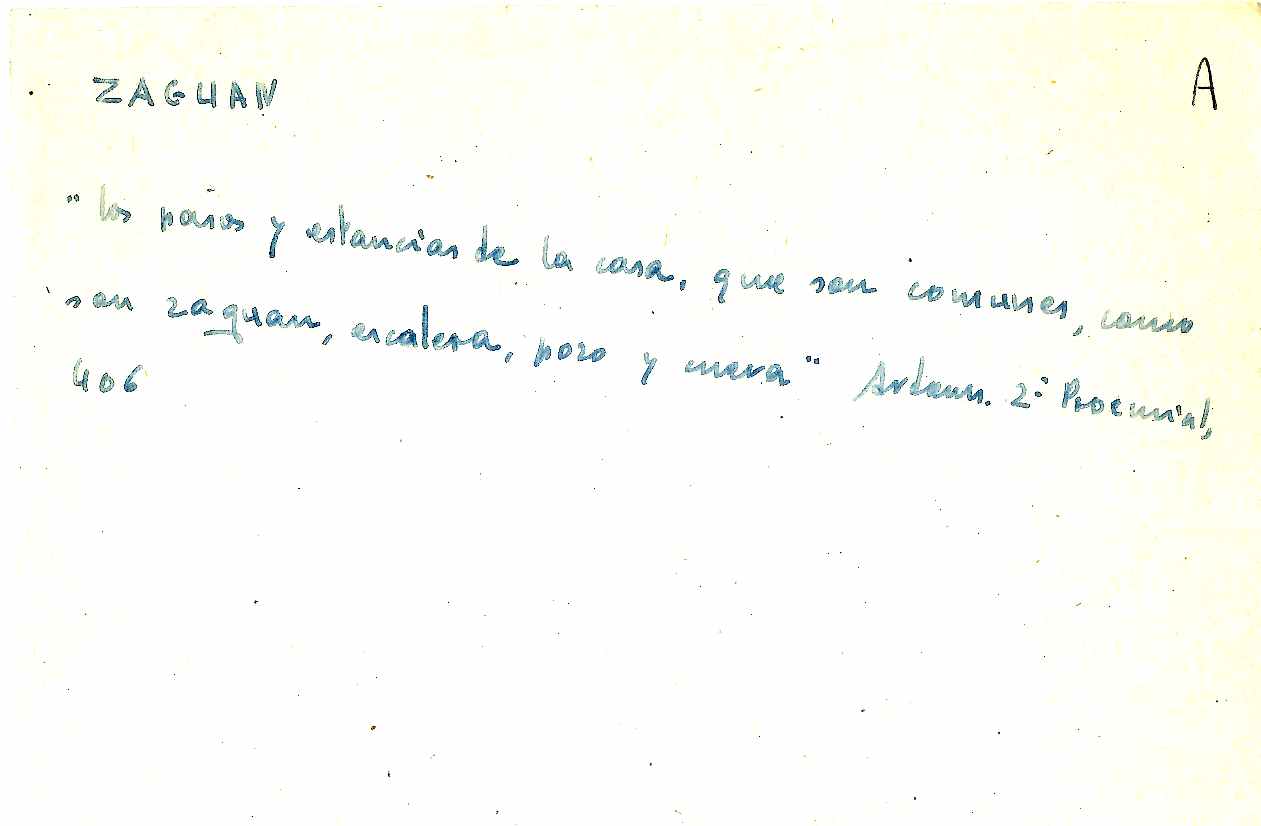 ZAGUAN
A
"los pasos y estancias de la casa, que son comunes, como
son zaguan, escalera, pozo y cueva" Ardemans. 2ª Proemial,
406